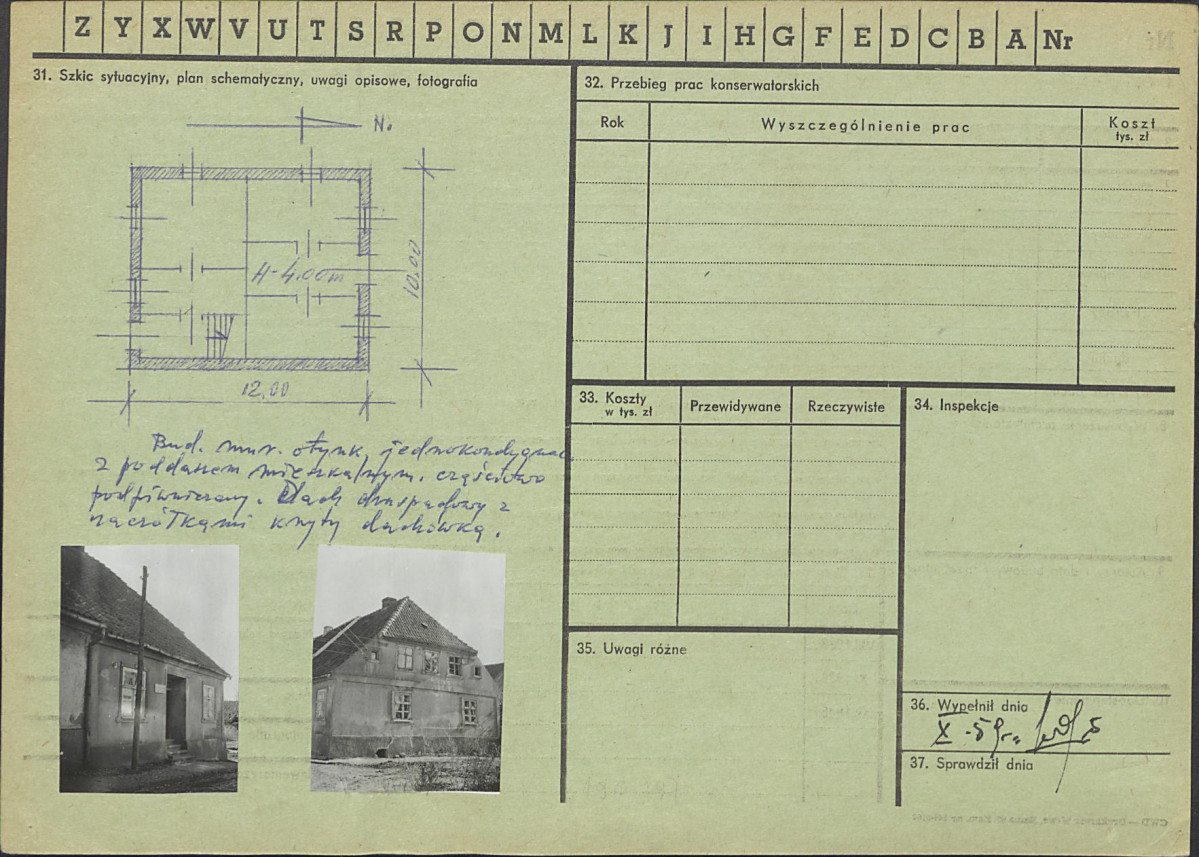 Z Y X W V U T S R P O N M L K J I H G F E D C B A Nr
31. Szkic sytuacyjny, plan schematyczny, uwagi opisowe, fotografia
N.
H-4,00m
10,00
12,00
Bud. mur. otynk, jednokondygnac
z poddaszem mieszkalnym. częściowo
podpiwniczony. Dach dwuspadowy z
naczółkami kryty dachówką.
32. Przebieg prac konserwatorskich
Rok
Wyszczególnienie prac
Koszt
tys. zł
33. Koszty
w tys. zł
Przewidywane
Rzeczywiste
34. Inspekcje
35. Uwagi różne
36. Wypełnił dnia
X-59r.
37. Sprawdził dnia